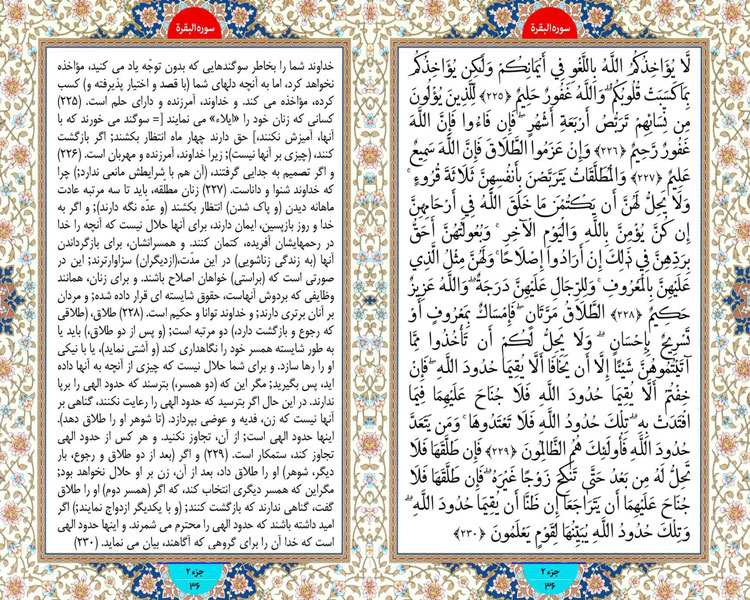 سوره البقرة
لَّا يُؤَاخِذُكُمُ اللَّهُ بِاللَّغْوِ فِي أَيْمَانِكُمْ وَلَٰكِن يُؤَاخِذُكُم
بِمَا كَسَبَتْ قُلُوبُكُمْ ۗ وَاللَّهُ غَفُورٌ حَلِيمٌ ﴿٢٢٥﴾ لِّلَّذِينَ يُؤْلُونَ
مِن نِّسَائِهِمْ تَرَبُّصُ أَرْبَعَةِ أَشْهُرٍ ۖ فَإِن فَاءُوا فَإِنَّ اللَّهَ
غَفُورٌ رَّحِيمٌ ﴿٢٢٦﴾ وَإِنْ عَزَمُوا الطَّلَاقَ فَإِنَّ اللَّهَ سَمِيعٌ
عَلِيمٌ ﴿٢٢٧﴾ وَالْمُطَلَّقَاتُ يَتَرَبَّصْنَ بِأَنفُسِهِنَّ ثَلَاثَةَ قُرُوءٍ ۚ
وَلَا يَحِلُّ لَهُنَّ أَن يَكْتُمْنَ مَا خَلَقَ اللَّهُ فِي أَرْحَامِهِنَّ
إِن كُنَّ يُؤْمِنَّ بِاللَّهِ وَالْيَوْمِ الْآخِرِ ۚ وَبُعُولَتُهُنَّ أَحَقُّ
بِرَدِّهِنَّ فِي ذَٰلِكَ إِنْ أَرَادُوا إِصْلَاحًا ۚ وَلَهُنَّ مِثْلُ الَّذِي
عَلَيْهِنَّ بِالْمَعْرُوفِ ۚ وَلِلرِّجَالِ عَلَيْهِنَّ دَرَجَةٌ ۗ وَاللَّهُ عَزِيزٌ
حَكِيمٌ ﴿٢٢٨﴾ الطَّلَاقُ مَرَّتَانِ ۖ فَإِمْسَاكٌ بِمَعْرُوفٍ أَوْ
تَسْرِيحٌ بِإِحْسَانٍ ۗ وَلَا يَحِلُّ لَكُمْ أَن تَأْخُذُوا مِمَّا
آتَيْتُمُوهُنَّ شَيْئًا إِلَّا أَن يَخَافَا أَلَّا يُقِيمَا حُدُودَ اللَّهِ ۖ فَإِنْ
خِفْتُمْ أَلَّا يُقِيمَا حُدُودَ اللَّهِ فَلَا جُنَاحَ عَلَيْهِمَا فِيمَا
افْتَدَتْ بِهِ ۗ تِلْكَ حُدُودُ اللَّهِ فَلَا تَعْتَدُوهَا ۚ وَمَن يَتَعَدَّ
حُدُودَ اللَّهِ فَأُولَٰئِكَ هُمُ الظَّالِمُونَ ﴿٢٢٩﴾ فَإِن طَلَّقَهَا فَلَا
تَحِلُّ لَهُ مِن بَعْدُ حَتَّىٰ تَنكِحَ زَوْجًا غَيْرَهُ ۗ فَإِن طَلَّقَهَا فَلَا
جُنَاحَ عَلَيْهِمَا أَن يَتَرَاجَعَا إِن ظَنَّا أَن يُقِيمَا حُدُودَ اللَّهِ ۗ
وَتِلْكَ حُدُودُ اللَّهِ يُبَيِّنُهَا لِقَوْمٍ يَعْلَمُونَ ﴿٢٣٠﴾
جزء ۲
۳۶
سوره البقرة
خداوند شما را بخاطر سوگندهایی که بدون توجّه یاد می کنید، مؤاخذه
نخواهد کرد، اما به آنچه دلهای شما (با قصد و اختیار پذیرفته و) کسب
کرده، مؤاخذه می کند. و خداوند، آمرزنده و دارای حلم است. (۲۲۵)
کسانی که زنان خود را «ایلاء» می نمایند [= سوگند می خورند که با
آنها، آمیزش نکنند،] حق دارند چهار ماه انتظار بکشند; اگر بازگشت
کنند، (چیزی بر آنها نیست); زیرا خداوند، آمرزنده و مهربان است. (۲۲۶)
و اگر تصمیم به جدایی گرفتند، (آن هم با شرایطش مانعی ندارد;) چرا
که خداوند شنوا و داناست. (۲۲۷) زنان مطلقه، باید تا سه مرتبه عادت
ماهانه دیدن (و پاک شدن) انتظار بکشند (و عدّه نگه دارند); و اگر به
خدا و روز بازپسین، ایمان دارند، برای آنها حلال نیست که آنچه را خدا
در رحمهایشان آفریده، کتمان کنند. و همسرانشان، برای بازگرداندن
آنها (به زندگی زناشویی) در این مدّت،(ازدیگران) سزاوارترند; این در
صورتی است که (براستی) خواهان اصلاح باشند. و برای زنان، همانند
وظایفی که بردوش آنهاست، حقوق شایسته ای قرار داده شده; و مردان
بر آنان برتری دارند; و خداوند توانا و حکیم است. (۲۲۸) طلاق، (طلاقی
که رجوع و بازگشت دارد،) دو مرتبه است; (و پس از دو طلاق،) باید یا
به طور شایسته همسر خود را نگاهداری کند (و آشتی نماید)، یا با نیکی
او را رها سازد. و برای شما حلال نیست که چیزی از آنچه به آنها داده
اید، پس بگیرید; مگر این که (دو همسر،) بترسند که حدود الهی را برپا
ندارند. در این حال اگر بترسید که حدود الهی را رعایت نکنند، گناهی بر
آنها نیست که زن، فدیه و عوضی بپردازد. (تا شوهر او را طلاق دهد).
اینها حدود الهی است; از آن، تجاوز نکنید. و هر کس از حدود الهی
تجاوز کند، ستمکار است. (۲۲۹) و اگر (بعد از دو طلاق و رجوع، بار
دیگر، شوهر) او را طلاق داد، بعد از آن، زن بر او حلال نخواهد بود;
مگراین که همسر دیگری انتخاب کند، که اگر (همسر دوم) او را طلاق
گفت، گناهی ندارند که بازگشت کنند; (و با یکدیگر ازدواج نمایند;) اگر
امید داشته باشند که حدود الهی را محترم می شمرند. و اینها حدود الهی
است که خدا آن را برای گروهی که آگاهند، بیان می نماید. (۲۳۰)
جزء ۲
۳۶